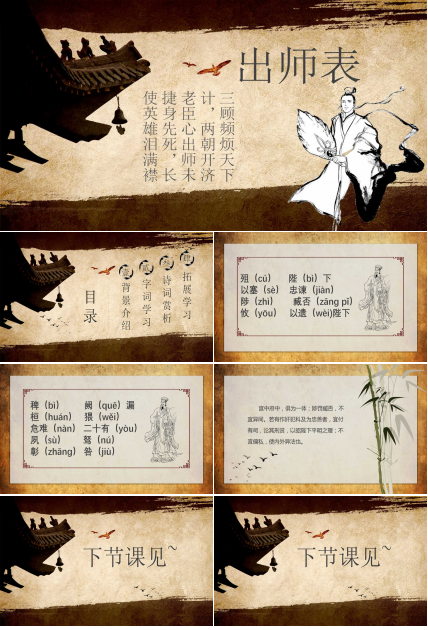 出师表
三顾频烦天下
计，两朝开济
老臣心出师未
捷身先死，长
使英雄泪满襟
目录
背景介绍
字词学习
诗词赏析
拓展学习
殂（cú） 陛（bì）下
以塞（sè） 忠谏（jiàn）
陟（zhì） 臧否（zāng pǐ）
攸（yōu） 以遗（wèi)陛下
裨（bì） 阙（quē）漏
桓（huán） 猥（wěi）
危难（nàn）二十有（yòu）
夙（sù） 驽（nú）
彰（zhāng） 咎（jiù）
宫中府中，俱为一体；陟罚臧否，不
宜异同。若有作奸犯科及为忠善者，宜付
有司，论其刑赏，以昭陛下平明之理；不
宜偏私，使内外异法也。
下节课见~
下节课见~